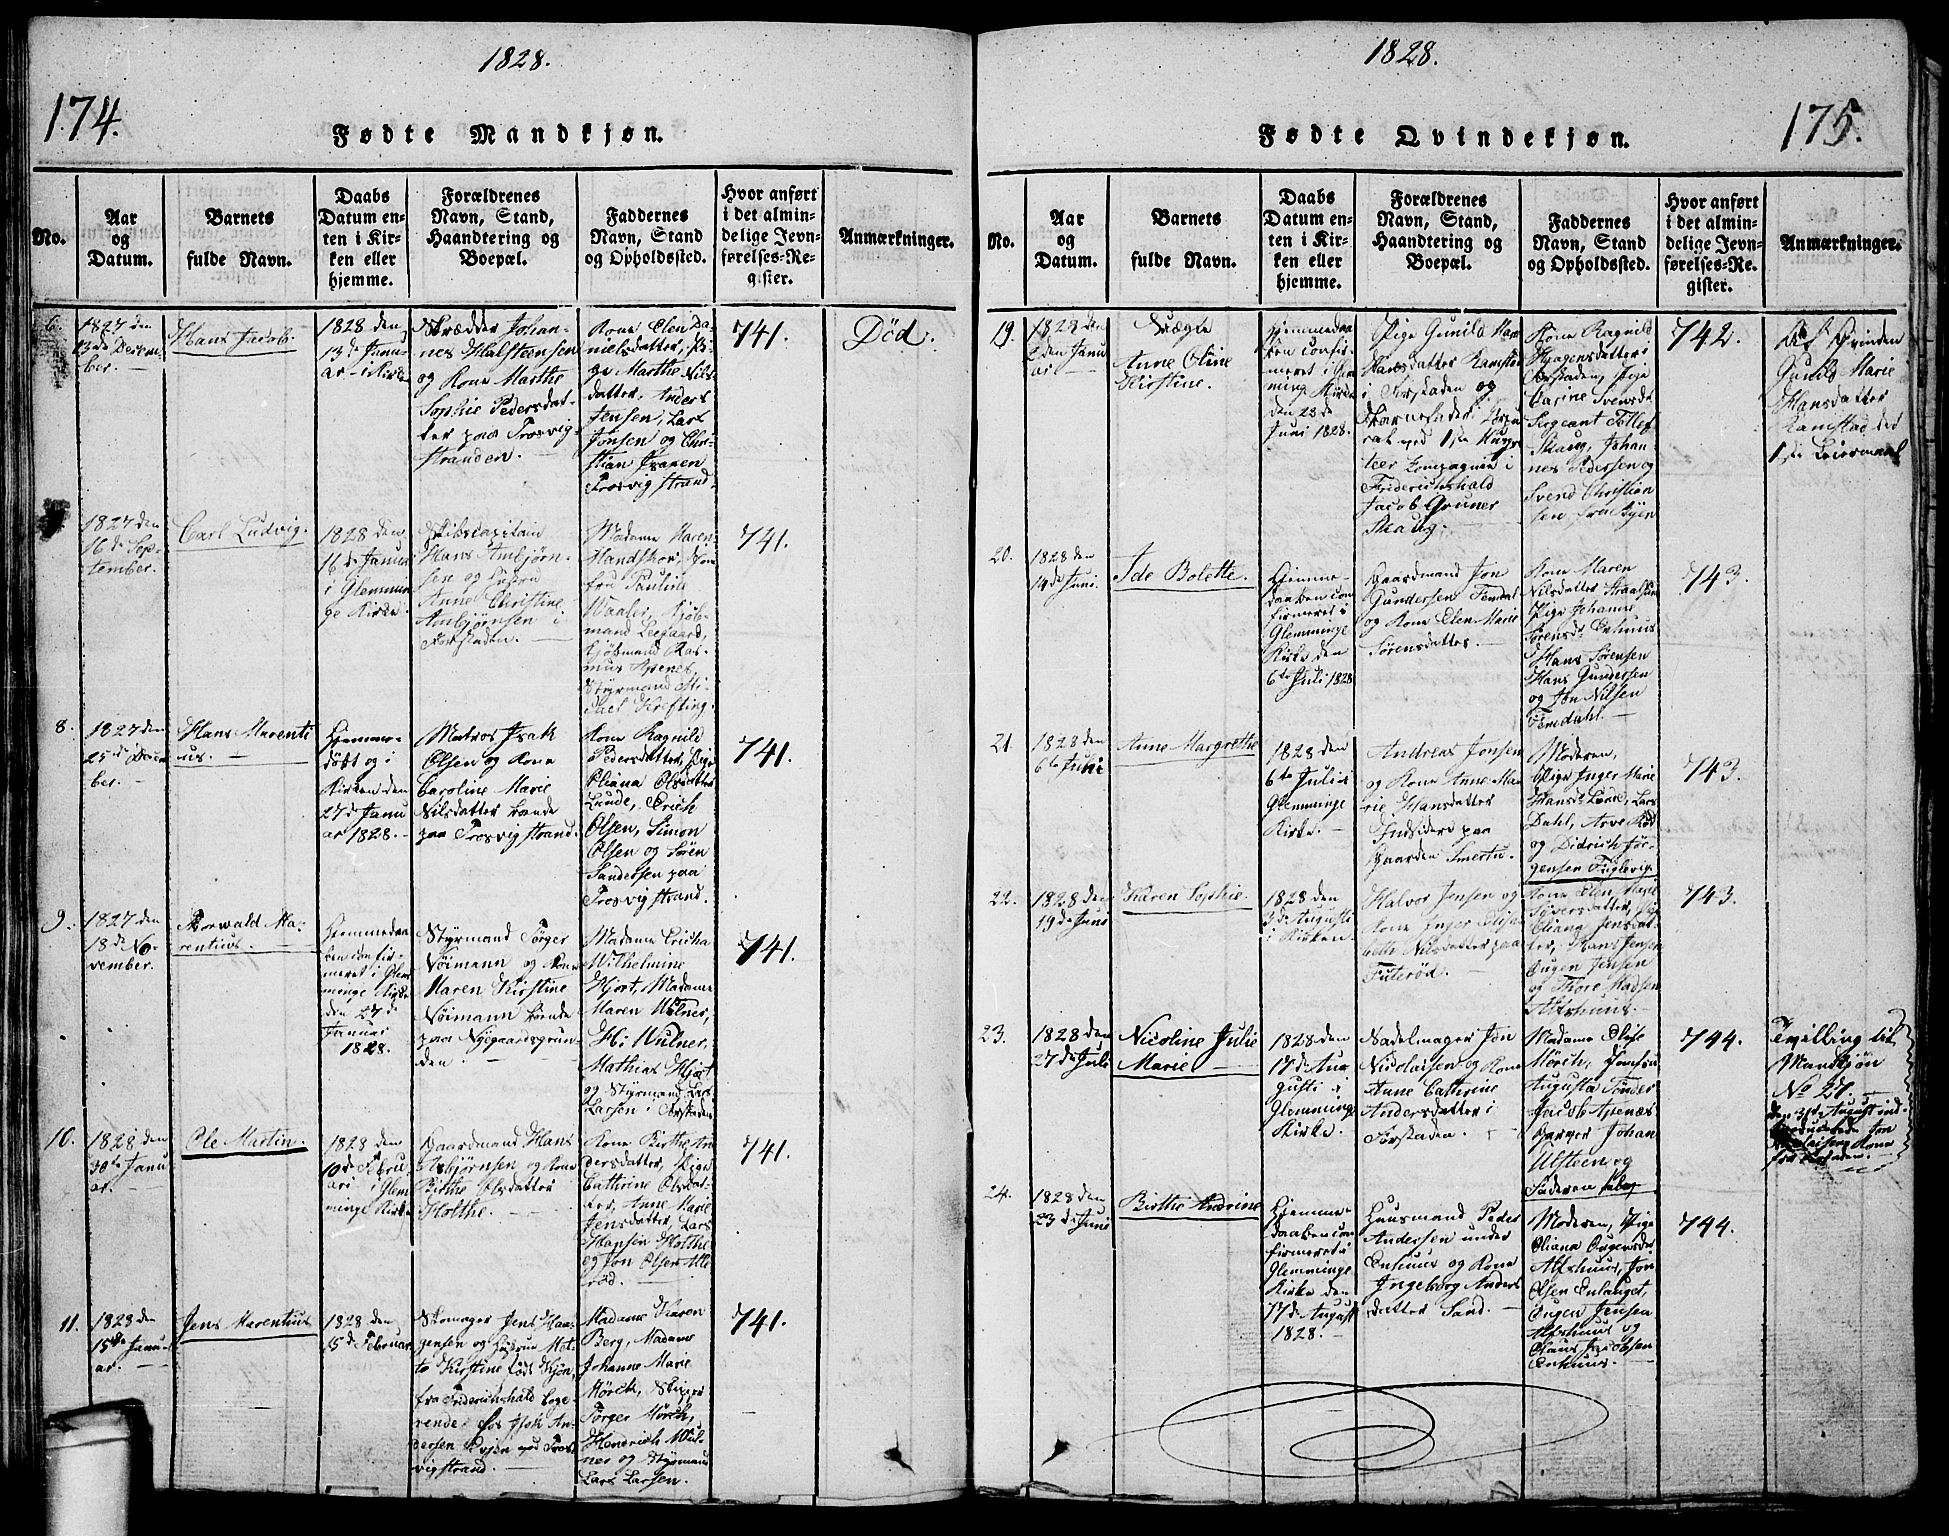 1828.
174.
Fødte Mandkjøn.
No.
Aar
og
Datum.
Barnets
fulde Navn.
Daabs
Datum en-
ten i Kir-
ken eller
hjemme.
Forældrenes
Navn, Stand,
Haandtering og
Boepæl.
Faddernes
Navn, Stand
og Opholdssted.
Hvor anført
i det almin-
delige Jevn-
førelses-Re-
gister.
Anmærkninger.
6.
1827 den
13de Decem-
ber.
Hans Jacob.
1828 den
13de Janu-
ar i Kirke
Skrædder Johan-
nes Halsteensen
og Kone Marthe
Sophie Pedersdat-
ter paa Trosvig-
stranden.
Kone Elen Da-
nielsdatter, Pi-
ge Marthe Nils-
datter, Anders
Jensen, Lars
Jonsen og Chri-
stian Isaxen
Trosvigstrand.
741.
Død.
1827 den
16de Sep-
tember.
Carl Ludvig.
1828 den
16de Janua
i Glemmin-
ge Kirke.
Skibscapitain
Hans Anbjørn-
sen og Fru
Anne Christine
Anbjørnsen i
Forstaden.
Madame Maren
Mandskor, Jom
fru Pauline
Waaler, Kjøb-
mand Leegaard,
Kjøbmand Ras-
mus Apenes,
Styrmand Mi-
chael Krefting.
741.
8.
1827 den
25de Decem-
ber.
Hans Marenti
us.
Hjemme-
døbt og i
Kirken den
27de Janu
ar 1828.
Matros Isak
Olsen og Kone
Caroline Marie
Nilsdatter boende
paa Trosvigstrand.
Kone Ragnild
Pedersdatter, Pige
Oliana Olsdatter
Lunde, Erich
Olsen, Simon
Olsen og Søren
Sandersen paa
Trosvigstrand.
741.
9.
1827 den
18de No-
vember.
Thorwald Ma-
rentius.
Hjemmedaa
ben confir-
meret i Glem
minge Kirke
den 27de
Januar
1828.
Styrmand Tørger
Nøimann og Kone
Maren Kirstine
Nøimann boende
paa Nygaardsgrun-
den.
Madame Ericha
Wilhelmine
Hjort, Madame
Maren Wulner,
H: Wulner.
Mathias Hjort
og Styrmand Lars
Larsen i Forstaden
741.
10.
1828 den
30te Janu
ar.
Ole Martin.
1828 den
10de Febru
ari i Glem
minge Kirke
Gaardmand Hans
Asbjørnsen og Kone
Birthe Olsdatter
Holthe.
Kone Birthe An
dersdatter, Pige
Cathrine Olsdat-
ter, Anne Marie
Jensdatter, Lars
Hansen Holthe
og Jon Olsen Alle
rød.
741.
11.
1828 den
15de Janu-
ar.
Jens Marentius
1828 den
15de Februar
Skomager Jens Haa-
gensen og Hustru Met-
te Kirstine født Kjøn,
fra Friderichshald loge-
rende hos Isak An-
dersen Krejen ved Tros-
vigstrand.
Madame Karen
Berg, Madame
Johanne Marie
Mørch, Skipper
Tørger Mørch,
Hendrich Wul-
ner og Styrmand
Lars Larsen.
741.
1828.
175.
Fødte Qvindekjøn.
No.
Aar
og
Datum.
Barnets
fulde Navn.
Daabs
Datum en-
ten i Kir-
ken eller
hjemme.
Forældrenes
Navn, Stand,
Haandtering og
Boepæl.
Faddernes
Navn, Stand
og Opholdssted.
Hvor anført
i det almin-
delige Jevn-
førelses-Re-
gister.
Anmærkninger.
19.
1828 den
2den Janu
ar
Uægte
Anne Oline
Kirstine.
Hjemmedaa
ben confir-
meret i Glem
minge Kirke
den 23de
Juni 1828.
Pige Gunild Marie
Hansdatter Ramstad
i Forstaden og
Barnefader
ved 1ste
teer Compagnie i
Friderichshald
Jacob Gruner
Skaug.
Kone Ragnild
Haagensdatter i
Forstaden, Pige
Carine Svensdr
Sergeant Tollef
Skaug, Johan-
nes Pedersen og
Svend Christian
sen
742.
Af Qvinden
Gunild Marie
Hansdatter
Ramstad sid
1ste Leiermaal
20.
1828 den
14de Juni.
Ide Bolette.
Hjemme-
daaben con
firmeret i
Glemminge
Kirke den
6te Juli 1828
Gaardmand Jon
Gundersen Femdal
og Kone Elen Marie
Sørensdatter.
Kone Maren
Nilsdatter
Pige Johanne
Sørensdr Enhuus
Hans Sørensen
Hans Gundersen
og Jon Nilsen
Femdahl.
743.
21.
1828 den
6te Juni
Anne Margrethe
1828 den
6te Juli i
Glemminge
Kirke.
Andreas Jonsen
og Kone Anne Ma-
rie Hansdatter
Indsidere paa
Gaarden Smertu.
Moderen,
Pige Inger Marie
Hansdr Lunde, Lars
Dahl, Arve Rød
og Didrich Jør-
gensen Fuglevig.
743.
22.
1828 den
19de Juni
Karen Sophie.
1828 den
3de Augusti
i Kirken.
Halvor Jensen og
Kone Inger Elisa
beth Nilsdatter paa
Futerød.
Kone Elen Marie
Syversdatter, Pige
Eliana Jensdat-
ter, Hans Jensen
Eugen Jensen
og Thore Madsen
Alfshuus.
743.
23.
1828 den
27de Juli
Nicoline Julie
Marie
1828 den
17de Au-
gusti i
Glemminge
Kirke.
Sadelmager Jon
Nicolaisen og Kone
Anne Cathrine
Andersdatter i
Forstaden.
Madame Oluse
Mørch, Jomfru
Augusta Tønder
Jacob Apenæs
Garver Johan
Ulsteen og
Faderen selv
744.
Tvilling til
Mandkjøn
No 27.
den 31te August ind-
troduceredes Jon
Nicolaisens Kone
fra Forstaden.
24.
1828 den
23de Juni
Birthe Andrine
Hjemme-
daaben con
firmeret i
Glemminge
Kirke den
17de August
1828.
Huusmand Peder
Andersen under
Enhuus og Kone
Ingeborg Anders
datter Sand.
Moderen, Pige
Oliana Eugensdr
Alfshuus, Jon
Olsen Enhuget,
Eugen Jensen
Alfshuus og
Claus Jacobsen
Enhuus.
744.